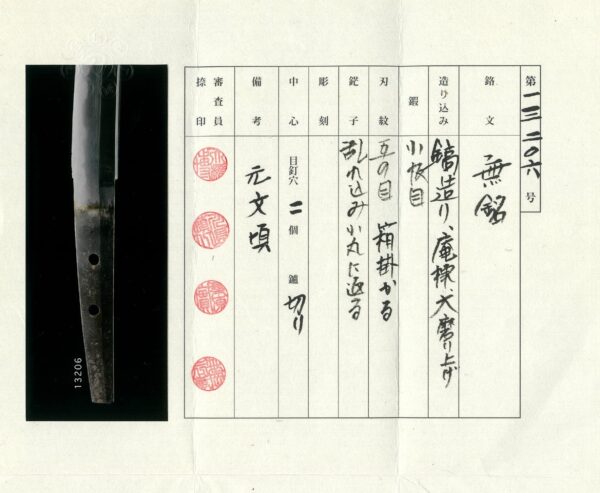 第一三二〇六号
銘文 無銘
造り込み 鎬造り、庵棟、大磨り上げ
鍛 小板目
刃紋 互の目 箱掛かる
鋩子 乱れ込み小丸に返る
彫刻
中心 目釘穴 二 個 鑢 切り
備考 元文頃
審査員捺印
13206